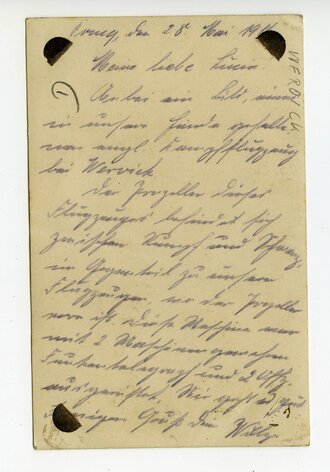 den 28. Mai 191
Meine liebe Lucie!
Anbei ein Bild, eines
in unsere Hände gefalle-
nen engl. Kampfflugzeug
bei Wervick.
Der Propeller dieses
Flugzeuges befindet sich
zwischen Rumpf und Schwanz,
im Gegenteil zu unseren
Flugzeugen, wo der Propeller
vorn ist. Diese Maschine war
mit 2 Maschinengewehren
Funkentelegraph und 2
ausgerüstet. Mir geht es gut
Gruß Dein Willy.
1